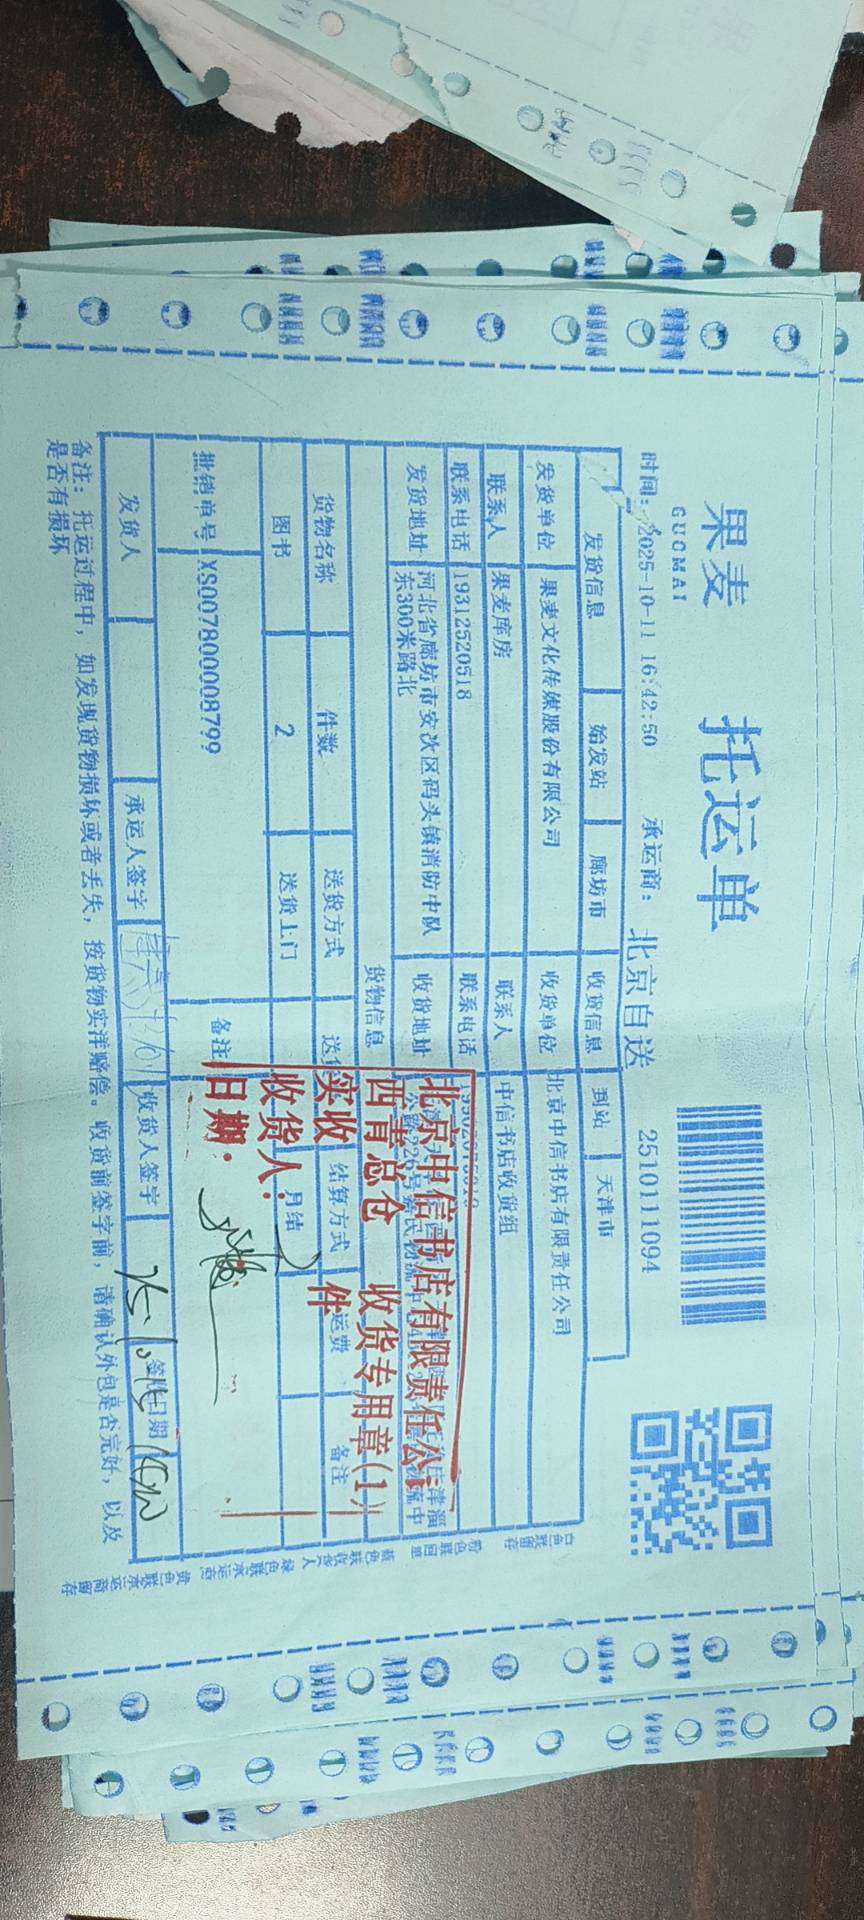 果麦
GUOMAI
托运单
时间: 2025-10-11 16:42:50 承运商: 北京自送 2510111094
发货信息 始发站 廊坊市 收货信息 到站 天津市
发货单位 果麦文化传媒股份有限公司 收货单位 北京中信书店有限责任公司
联系人 果麦库房 联系人 中信书店收货组
联系电话 19312520518 联系电话
发货地址 河北省廊坊市安次区码头镇消防中队东300米路北 收货地址
货物信息
货物名称 件数 送货方式 结算方式 运费 备注
图书 2 送货上门 月结
批销单号 XS007800008799 备注
发货人 承运人签字 收货人签字 签收日期
备注: 托运过程中, 如发现货物损坏或者丢失, 按货物实洋赔偿。收货前签字前, 请确认外包是否完好, 以及
是否有损坏
北京中信书店有限责任公司
西青总仓 收货专用章(1)
实收 2 件
收货人:
日期:
白色联留存
粉色联回单
蓝色联收货人
绿色联承运商
黄色联承运商留存